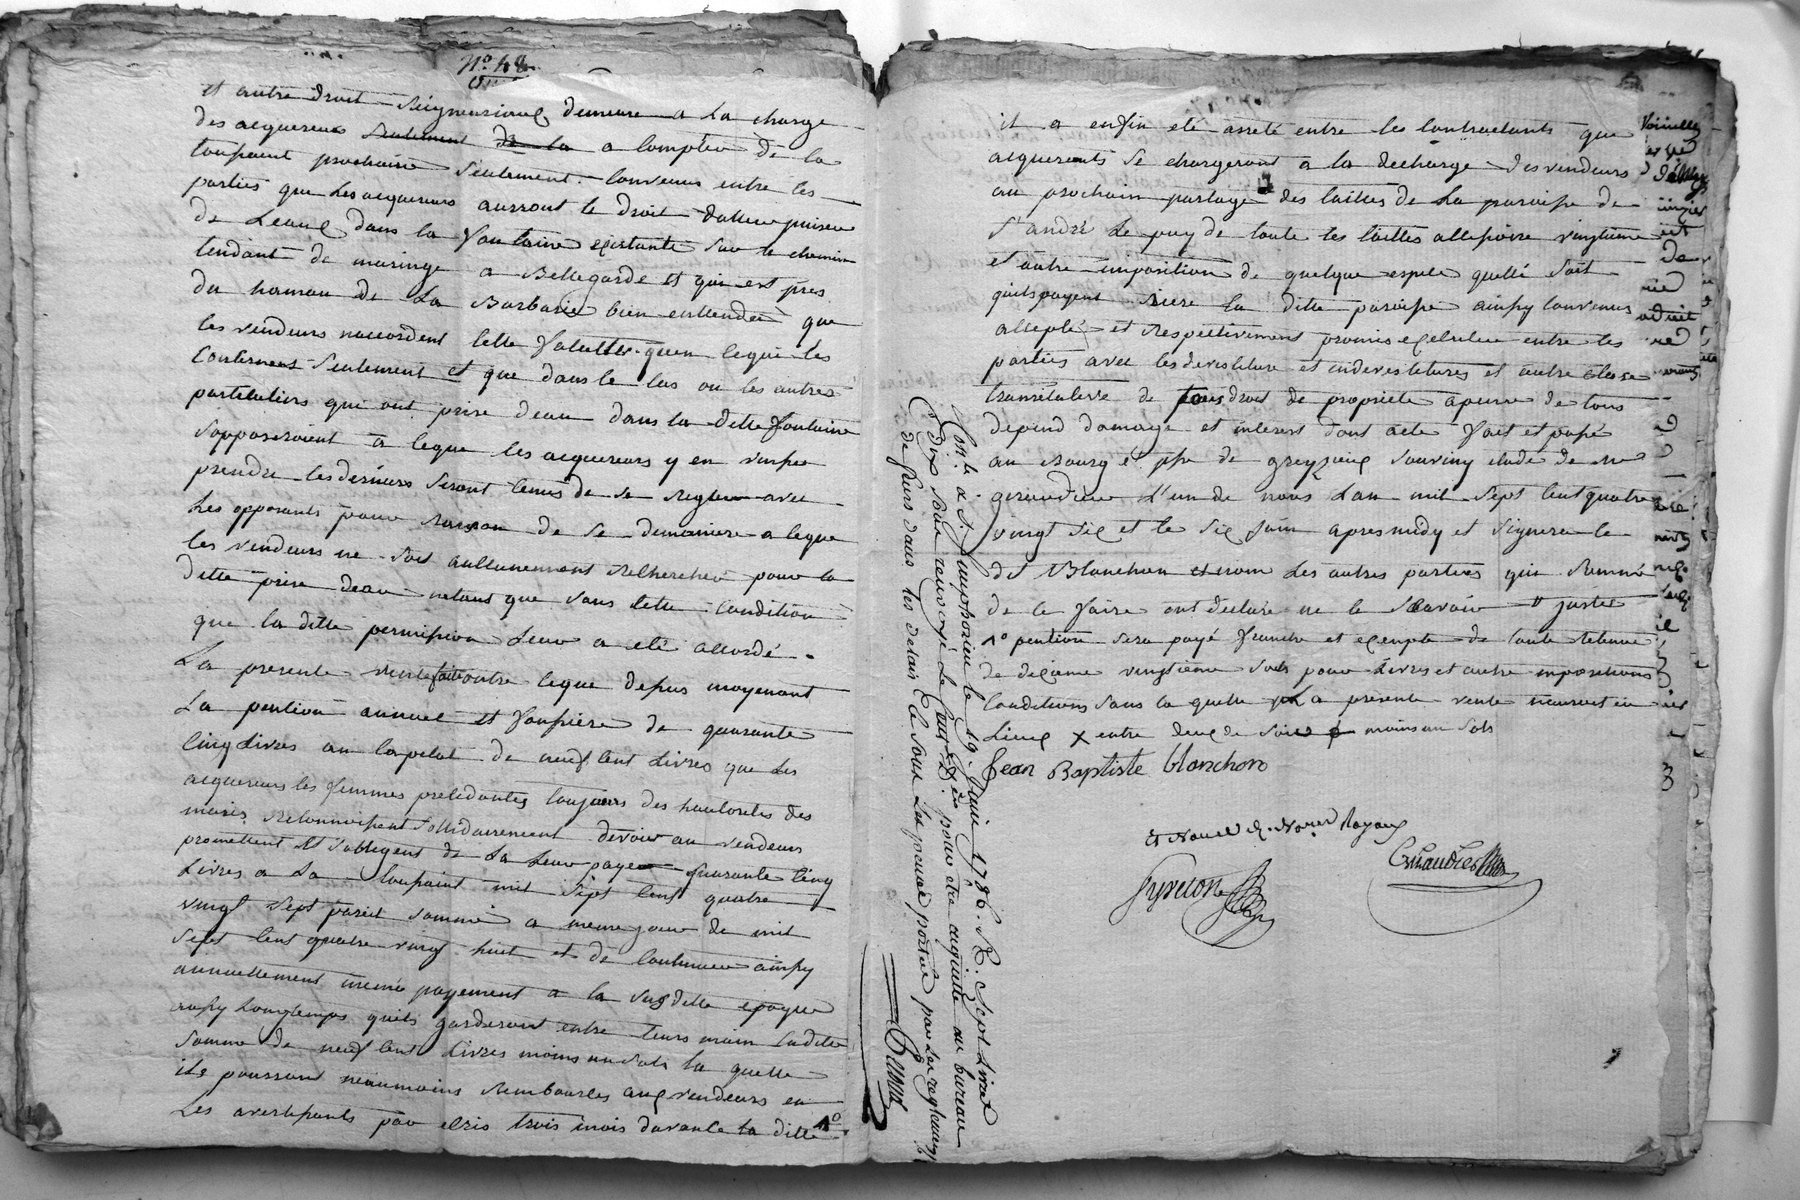 N° 48
et autre droit seigneuriaux demeure a la charge
des acquereurs seulement de la a compter de la
toupaint prochaine seulement. convenus entre les
parties que les acquereurs auront le droit daller puiser
de Leaux dans la fontaine existante sur le chemin
tendant de maringe a Bellegarde et qui est pres
du hameau de La Barbarie bien entendu que
les vendeurs naccordent cette faculté quen ceque les
Concernent seulement et que dans le cas ou les autres
particuliers qui ont prise deau dans la ditte fontaine
sopposeroient a ceque les acquereurs y en vinsse
prendre les derniers seront tenus de se regler avec
Les opposants pour raison de se demaniere a ceque
les vendeurs ne soit aullunement recherchér pour la
ditte prise deau netant que sous cette condition
que la ditte permission leur a eté accordé.
La presente vente faitte outre ceque depus moyenant
La pention annuel et fonsiere de quarante
cinq Livres au capital de neuf cent Livres que Les
acquereurs les femmes precedantes toujours des hautorités des
maris reconnoissent sollidairement devoir au vendeurs
promettent et sobligent de La Leur payer quarante cinq
Livres a La toupaint mil sept cent quatre
vingt sept pareil somme a meme jour de mil
sept cent quatre vingt huit et de continuer ainsy
annuellement meme payement a la susditte epoque
ausy Longtemps quils garderont entre leurs main laditte
somme de neuf cent Livres moins un sols la quelle
ils pourront neaumoins rembourcés aux vendeurs en
Les avertissants par ecris trois mois davance la ditte 1°
il a enfin eté arreté entre les contractants que
acquerants se chargeront a la decharge des vendeurs
au prochain partage des taittes de La paroisse de
S.t andré Le puy de toute les taittes allepoire vingtieme
et autre imposition de quelque espece quelle soit
quils payent riere la ditte paroisse ainsy convenus
accepté et respectivement promis executer entre les
parties avec les devestiture et indevestitures et autre clause
translative de tous droit de propriete apeine de tous
depend damage et interest dont acte fait et passé
au Bourg et psse de grezieux souviny etude de me
gerandier L'un de nous Lan mil sept cent quatre
vingt six et le six juin apres midy et signera le
dt Blanchon et nom Les autres parties qui sommé
de ce faire ont declaré ne le scavoir # juste
1° pention sera payé franche et exempte de toute retenue
de dixieme vingtieme sols pour Livres et autre impositions
conditions sans la quelle La presente vente neauroit eu
Lieux X entre deux de soirs moins un sols
Jean Baptiste blanchon
et nous Royaux
Gerandier
Con.le a S. Simphorien le 19. Juin 1786. R. Sept Livres
dix sols renvoyé Le pour etre acquitté au bureau
de feurs dans les delais Ce sous La peine portée par Les reglemens